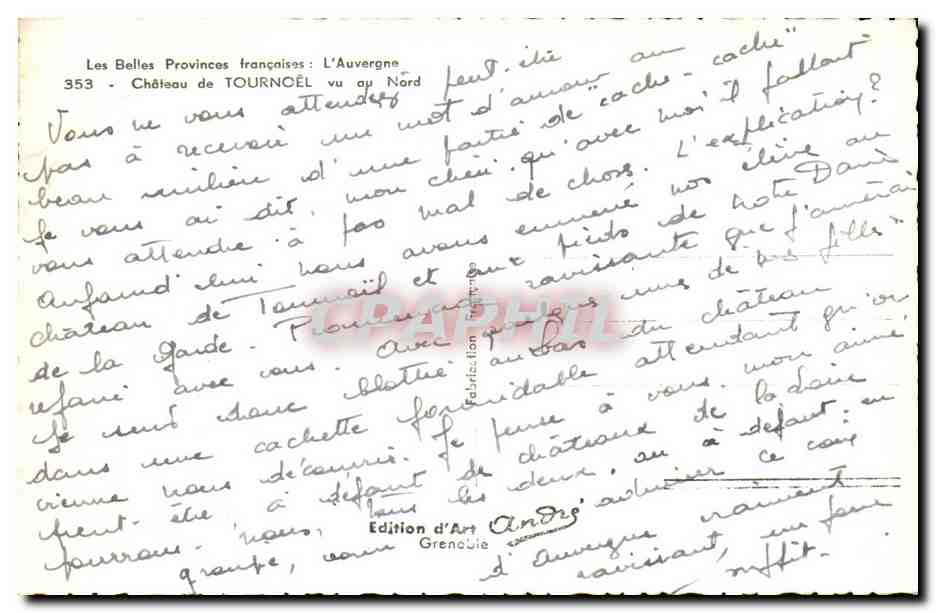 Les Belles Provinces françaises : L'Auvergne
353 - Château de TOURNOËL vu au Nord
Vous ne vous attendez peut-être
pas à recevoir un mot d'amour au
beau milieu d'une partie de "cache-cache"
Je vous ai dit, mon chéri, qu'avec moi il fallait
vous attendre à pas mal de choses. L'explication?
Aujourd'hui nous avons emmené nos élèves au
château de Tournoël et aux pieds de Notre Dame
de la Garde. Promenade ravissante que j'aimerais
refaire avec vous. Avec quelques unes de "mes filles"
Je suis donc blottie au bas du château
dans une cachette formidable attendant qu'on
vienne nous découvrir. Je pense à vous mon aimé
peut-être à défaut de châteaux de la Loire
pourrons-nous, tous les deux, ou à défaut, en
groupe, venir admirer ce coin
d'Auvergne vraiment
ravissant,
suffit.
Fabrication Française
Edition d'Art André
Grenoble
CPAPHIL